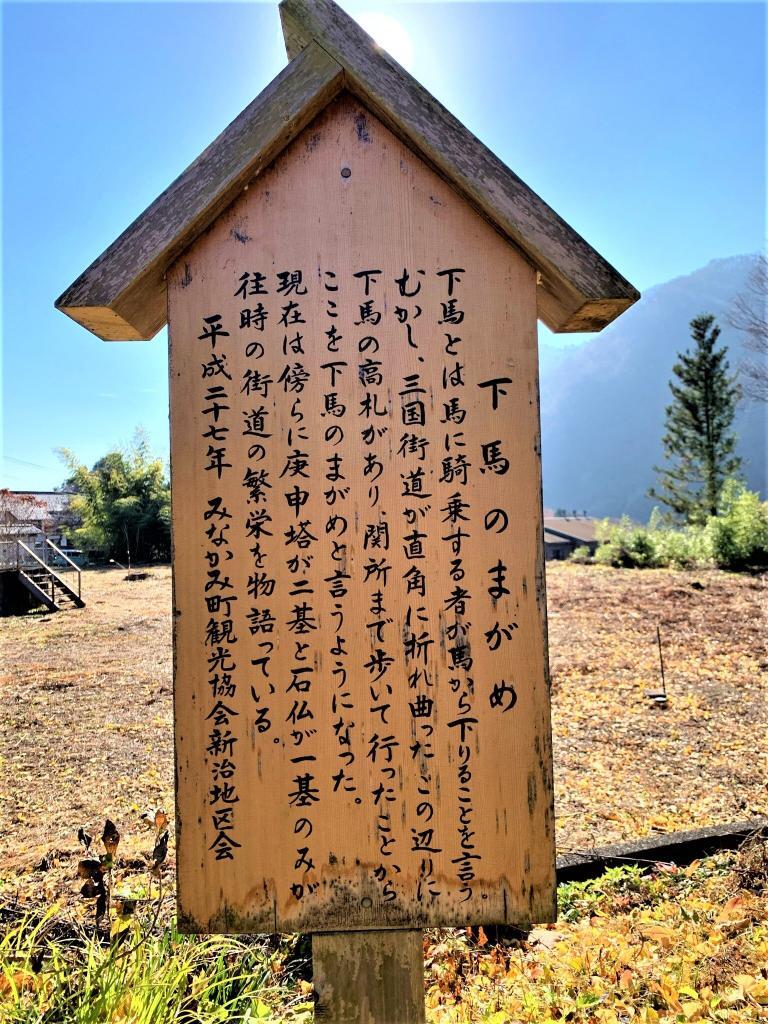 下馬のまがめ
下馬とは馬に騎乗する者が馬から下りることを言う。
むかし、三国街道が直角に折れ曲ったこの辺りに
下馬の高札があり、関所まで歩いて行ったことから
ここを下馬のまがめと言うようになった。
現在は傍らに庚申塔が二基と石仏が一基のみが
往時の街道の繁栄を物語っている。
平成二十七年 みなかみ町観光協会新治地区会